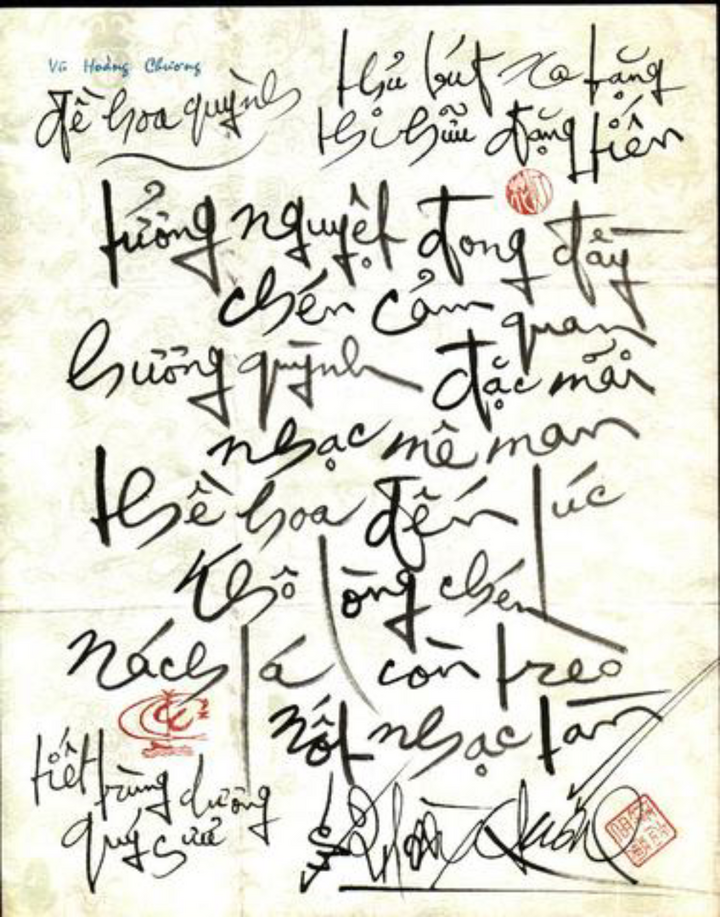 Vũ Hoàng Chương
đề hoa quỳnh
thủ bút xa tặng
thi hữu đặng tiến
tưởng nguyệt đong đầy
chén cảm quan
hương quỳnh đặc mãi
nhạc mê man
thề hoa đến lúc
khô lòng chén
nách lá còn treo
nốt nhạc tàn
tiết trùng dương
quý sửu